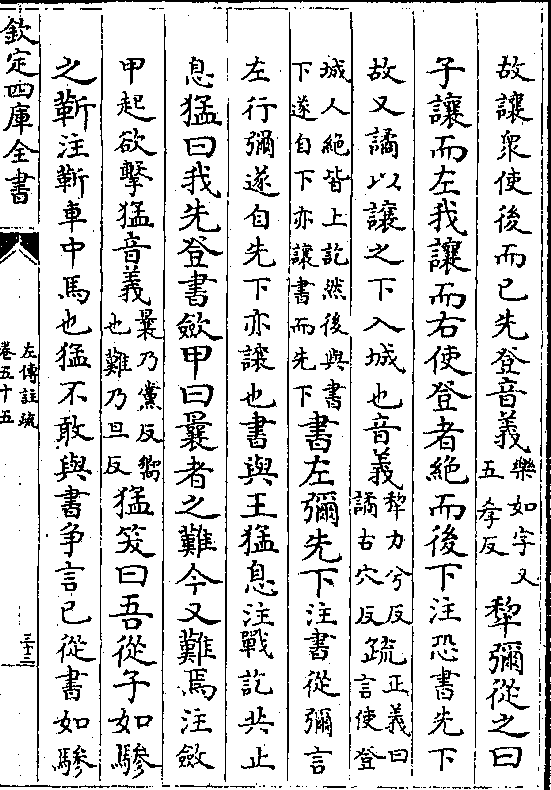 故讓衆使後而已先登音義樂如字又五孝反犂彌從之曰
子讓而左我讓而右使登者絕而後下注恐書先下
故又譎以讓之下入城也音義犂力兮反譎古穴反疏正義曰言使登
城人絕皆上訖然後與書下遂自下亦讓書而先下書左彌先下注書從彌言
左行彌遂自先下亦讓也書與王猛息注戰訖共止
息猛曰我先登書歛甲曰曩者之難今又難焉注歛
甲起欲擊猛音義曩乃黨反嚮也難乃旦反猛笑曰吾從子如驂
之靳注靳車中馬也猛不敢與書爭言已從書如驂
欽定四庫全書
左傳註疏
卷五十五
三十三